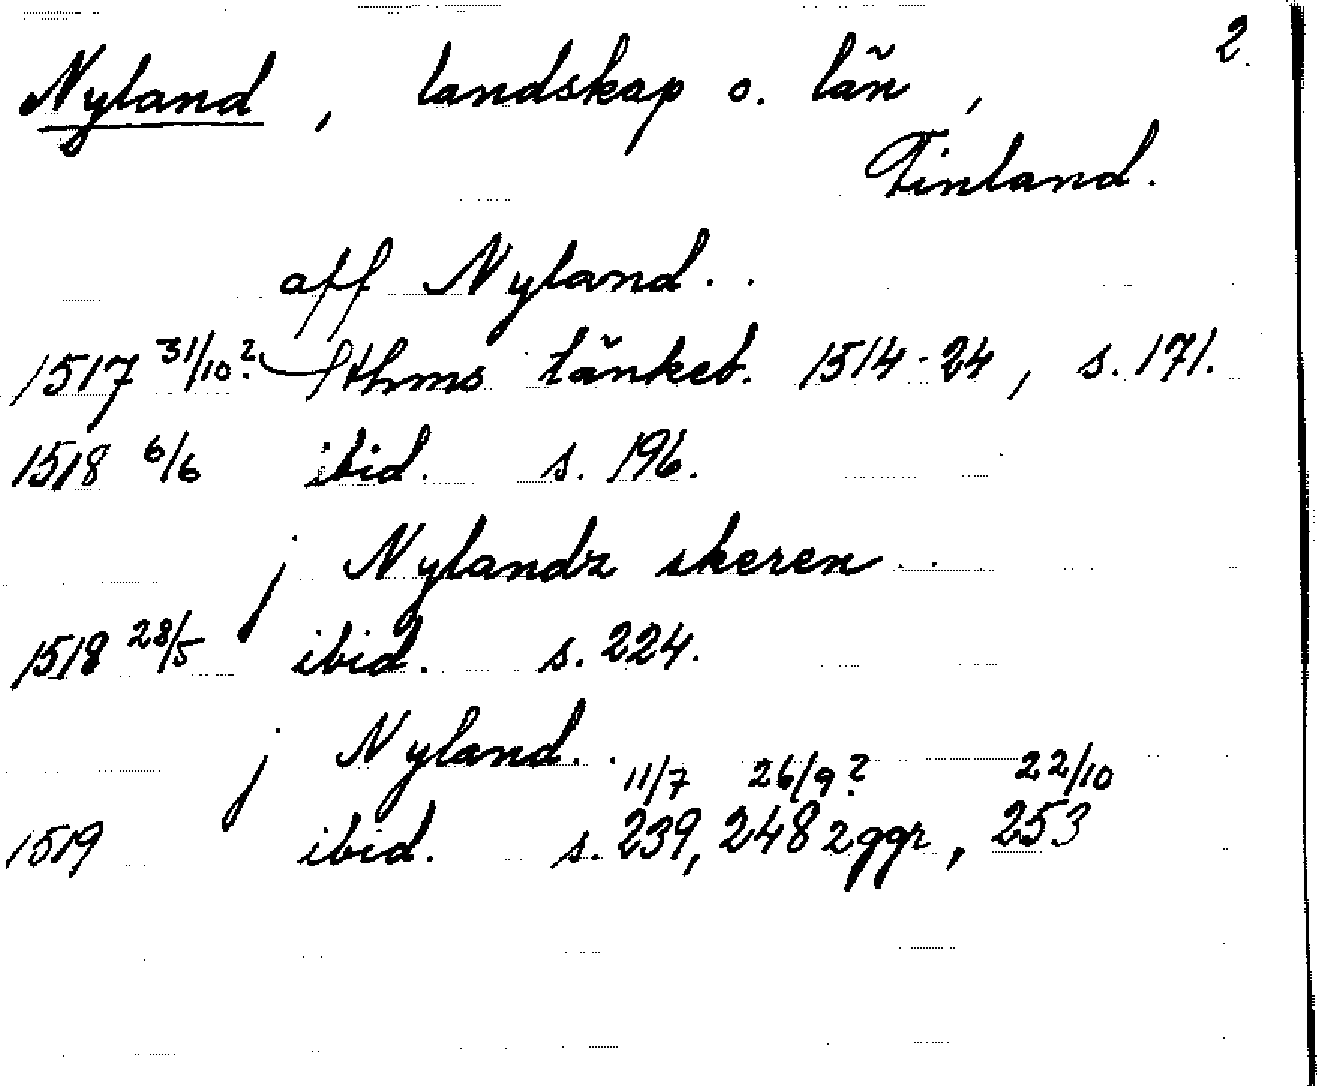 2.
Nyland, landskap o. län,
Finland.
aff Nyland.
1517 31/10? Sthms tänkeb. 1514-24, s. 171.
1518 6/6 ibid. s. 196.
j Nylandz skeren
1518 28/5 ibid. s. 224.
j Nyland.
11/7 26/9? 22/10
1519 ibid. s. 239, 248 2ggr, 253